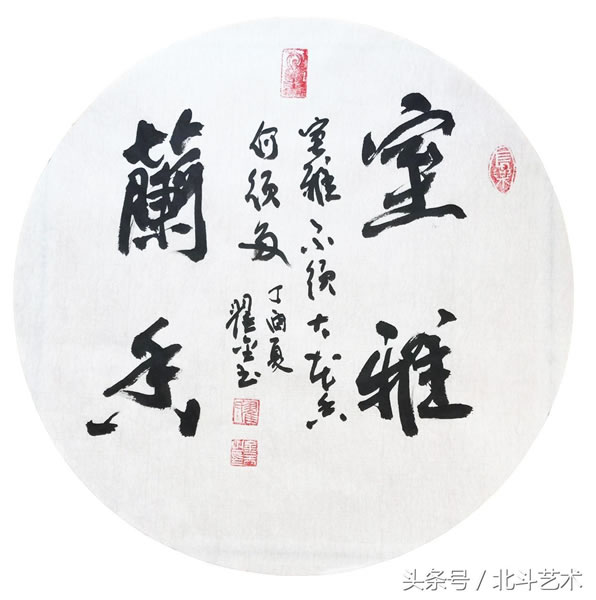 室雅
蘭香
室雅不須大花香
何須多
丁酉夏
头条号 / 北斗艺术